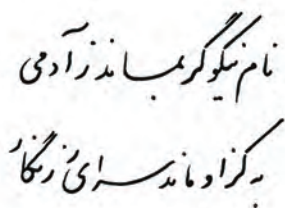 نام نیکو گر بماند ز آدمی
به کزاو ماند سرای زرنگار